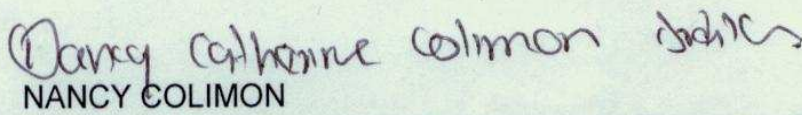 Nancy Catherine Colimon
NANCY COLIMON